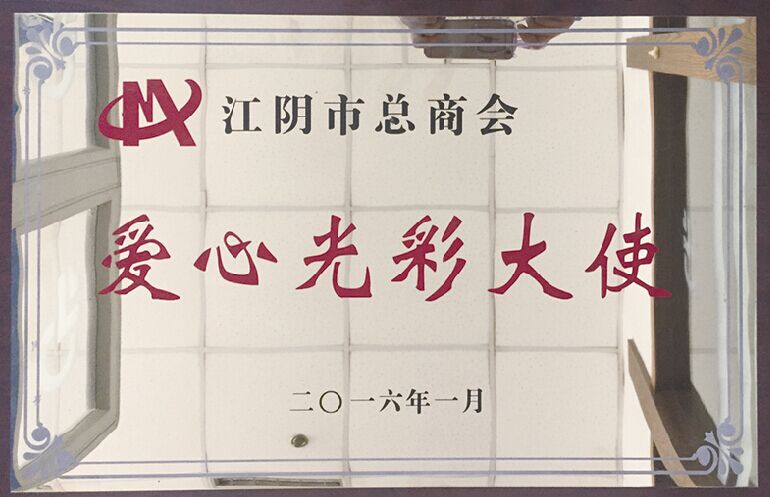 江阴市总商会
爱心光彩大使
二〇一六年一月